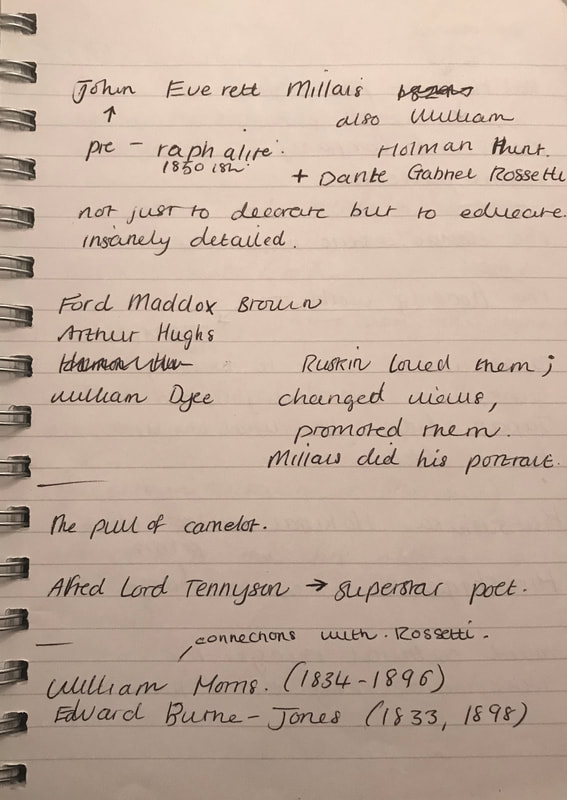 John Everett Millais
also William
pre - raphalite.
Holman Hunt.
1850
+ Dante Gabriel Rossetti
not just to decorate but to educate.
insanely detailed.
Ford Maddox Brown
Arthur Hughs
Ruskin loved them;
William Dyce
changed views,
promoted them.
Millais did his portrait.
The pull of camelot.
Alfred Lord Tennyson → superstar poet.
connections with. Rossetti.
William Morris. (1834-1896)
Edward Burne-Jones (1833, 1898)